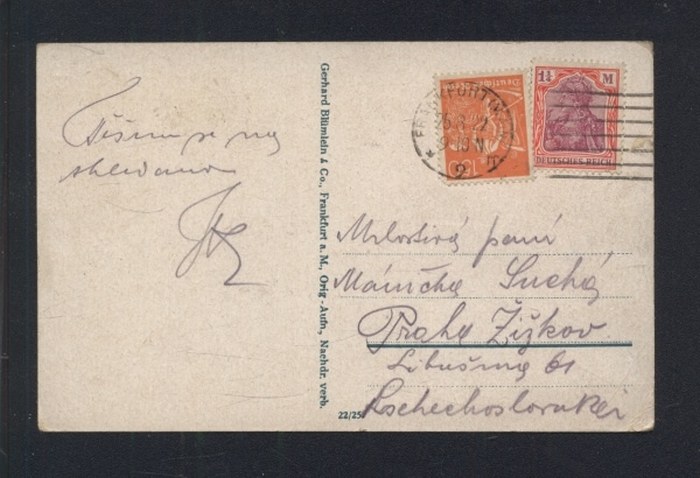 Těším se na
shledanou
Gerhard Blümlein & Co., Frankfurt a. M., Orig-Aufn., Nachdr. verb.
22/25
FRANKFURT
1¼ M
DEUTSCHES REICH
Milostivá paní
Mánička Suchá
Praha Žižkov
Libušina 61
Tschechoslovakei